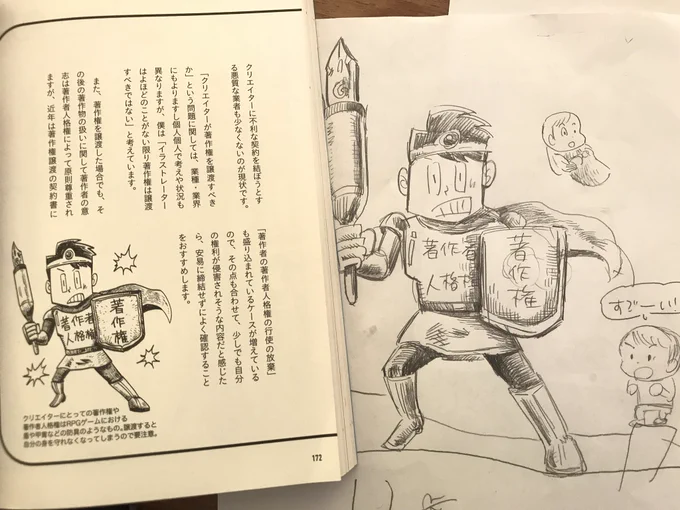 クリエイターに不利な契約を結ぼうとす
る悪質な業者も少なくないのが現状です。
「クリエイターが著作権を譲渡すべき
か」という問題に関しては、業種・業界
にもよりますし個人個人で考えや状況も
異なりますが、僕は「イラストレーター
はよほどのことがない限り著作権は譲渡
すべきではない」と考えています。
また、著作権を譲渡した場合でも、そ
の後の著作物の扱いに関して著作者の意
志は著作者人格権によって原則尊重され
ますが、近年は著作権譲渡の契約書に
「著作者の著作者人格権の行使の放棄」
も盛り込まれているケースが増えている
ので、その点も合わせて、少しでも自分
の権利が侵害されそうな内容だと感じた
ら、安易に締結せずによく確認すること
をおすすめします。
著作者
人格権
著作権
クリエイターにとっての著作権や
著作者人格権はRPGゲームにおける
盾や甲冑などの防具のようなもの。譲渡すると
自分の身を守れなくなってしまうので要注意。
172
著作者
人格権
著作権
すごーい!!